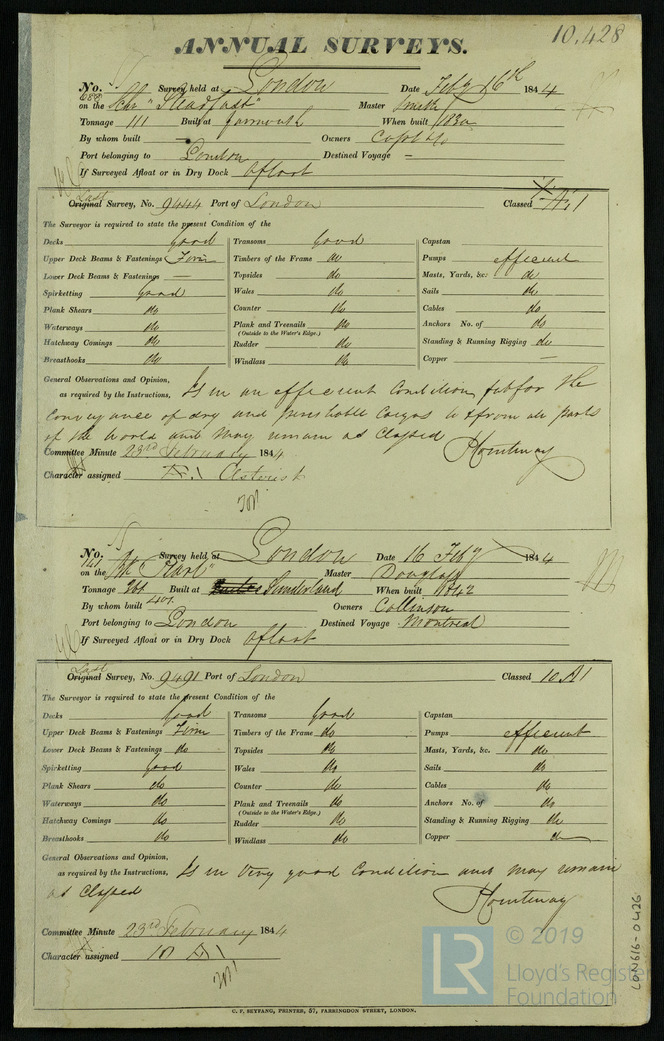 10,428
ANNUAL SURVEYS.
No. 688 Survey held at London Date Feby 16th 1844
on the Schr "Steadfast" Master Smith
Tonnage 111 Built at Yarmouth When built 1830
By whom built — Owners Capt & Co
Port belonging to London Destined Voyage —
If Surveyed Afloat or in Dry Dock Afloat
Last
Original Survey, No. 9444 Port of London Classed Æ 1
The Surveyor is required to state the present Condition of the
Decks Good Transoms Good Capstan
Upper Deck Beams & Fastenings Firm Timbers of the Frame do Pumps efficient
Lower Deck Beams & Fastenings — Topsides do Masts, Yards, &c. do
Spirketting Good Wales do Sails do
Plank Shears do Counter do Cables do
Waterways do Plank and Treenails do Anchors No. of do
(Outside to the Water's Edge.)
Hatchway Comings do Rudder do Standing & Running Rigging do
Breasthooks do Windlass do Copper —
General Observations and Opinion,
as required by the Instructions, Is in an efficient Condition, fit for the
Conveyance of dry and perishable Cargos to & from all parts
of the World and may remain as Classed
Committee Minute 23rd February 1844
Character assigned Æ 1 Asterisk
No. 141 Survey held at London Date 16 Feby 1844
on the Bk "Pearl" Master Douglass
Tonnage Built at Sunderland When built 1842
By whom built Owners Collinson
Port belonging to London Destined Voyage Montreal
If Surveyed Afloat or in Dry Dock Afloat
Last
Original Survey, No. 9491 Port of London Classed 10 A1
The Surveyor is required to state the present Condition of the
Decks Good Transoms Good Capstan
Upper Deck Beams & Fastenings Firm Timbers of the Frame do Pumps efficient
Lower Deck Beams & Fastenings do Topsides do Masts, Yards, &c. do
Spirketting Good Wales do Sails do
Plank Shears do Counter do Cables do
Waterways do Plank and Treenails do Anchors No. of do
(Outside to the Water's Edge.)
Hatchway Comings do Rudder do Standing & Running Rigging do
Breasthooks do Windlass do Copper do
General Observations and Opinion,
as required by the Instructions, Is in Very good Condition and may remain
as Classed
Committee Minute 23rd February 1844
Character assigned 10 A1
C. F. SEYFANG, PRINTER, 57, FARRINGDON STREET, LONDON.
LON616-0426
LR © 2019
Lloyd's Register
Foundation